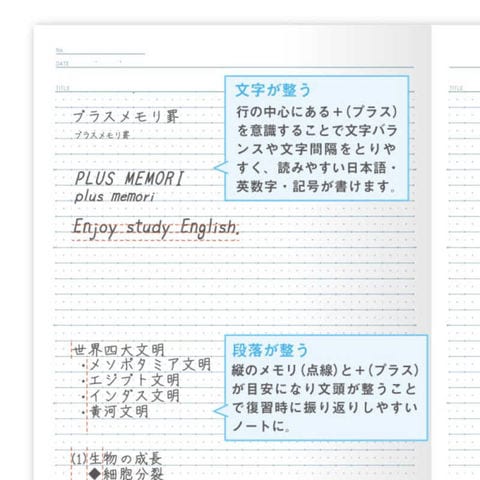 No.
DATE
TITLE
プラスメモリ罫
プラスメモリ罫
PLUS MEMORI
plus memori
Enjoy study English.
文字が整う
行の中心にある+(プラス)
を意識することで文字バラ
ンスや文字間隔をとりや
すく、読みやすい日本語・
英数字・記号が書けます。
世界四大文明
・メソポタミア文明
・エジプト文明
・インダス文明
・黄河文明
段落が整う
縦のメモリ(点線)と+(プラス)
が目安になり文頭が整うこと
で復習時に振り返りしやすい
ノートに。
(1)生物の成長
◆細胞分裂
TITLE